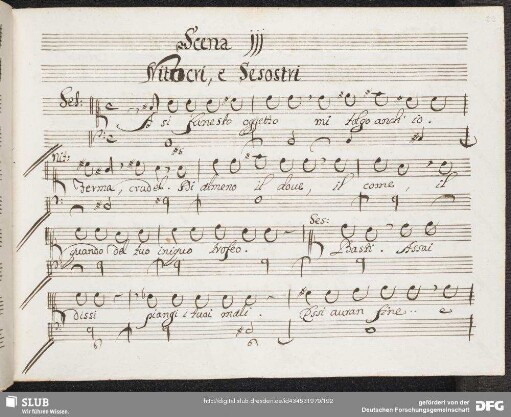 Scena III
Nitocri, e Sesostri
Ses:
A si funesto oggetto mi tolgo anch' io.
Nit:
Ferma, crudel. Di almeno il dove, il come, il
Ses:
quando del tuo iniquo trofeo. Basti. Assai
dissi piangi i tuoi mali. Essi auran fine... e
SLUB
Wir führen Wissen.
http://digital.slub-dresden.de/id434931979/102
gefördert von der
Deutschen Forschungsgemeinschaft
DFG